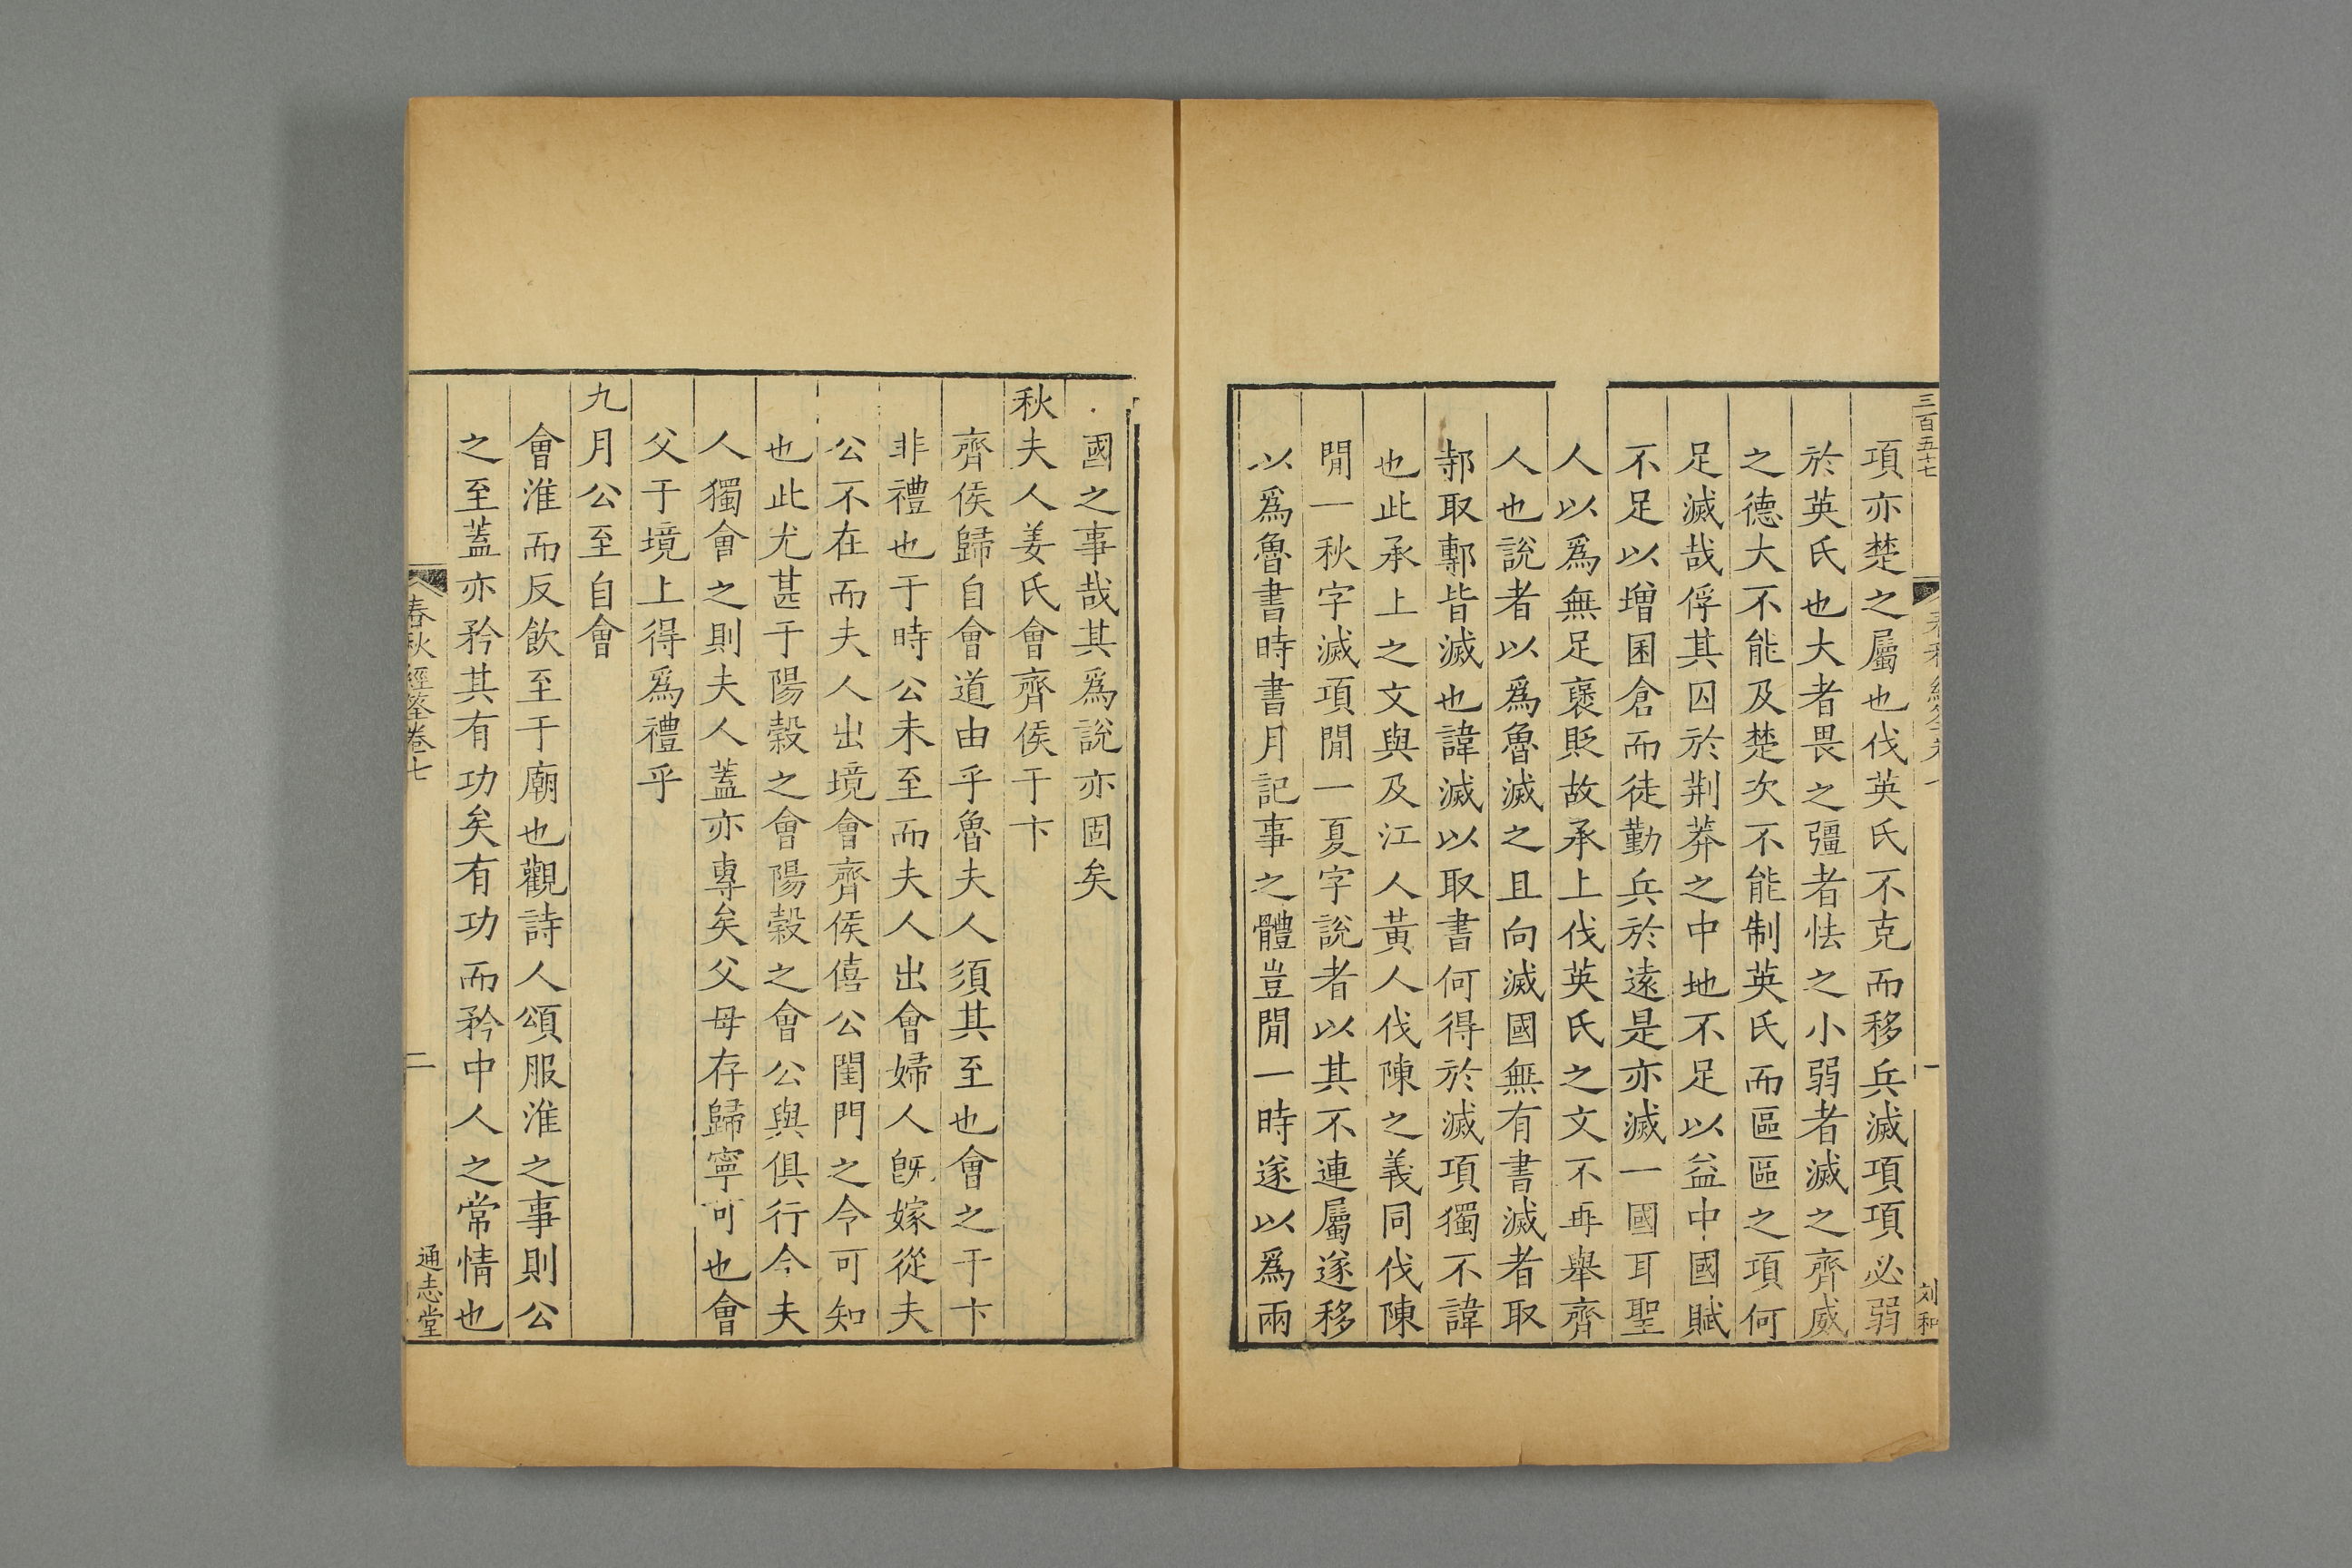 三百五十七
刘和
項亦楚之屬也伐英氏不克而移兵滅項項必弱
於英氏也大者畏之彊者怯之小弱者滅之齊威
之德大不能及楚次不能制英氏而區區之項何
足滅哉俘其囚於荆莽之中地不足以益中國賦
不足以增囷倉而徒勤兵於逺是亦滅一國耳聖
人以爲無足褒貶故承上伐英氏之文不再舉齊
人也說者以爲魯滅之且向滅國無有書滅者取
邿取鄟皆滅也諱滅以取書何得於滅項獨不諱
也此承上之文與及江人黃人伐陳之義同伐陳
閒一秋字滅項閒一夏字說者以其不連屬遂移
以爲魯書時書月記事之體豈閒一時遂以爲兩
國之事哉其爲說亦固矣
秋夫人姜氏會齊侯于卞
齊侯歸自會道由乎魯夫人須其至也會之于卞
非禮也于時公未至而夫人出會婦人旣嫁從夫
公不在而夫人出境會齊侯僖公閨門之令可知
也此尤甚于陽榖之會陽榖之會公與俱行今夫
人獨會之則夫人蓋亦專矣父母存歸寧可也會
父于境上得爲禮乎
九月公至自會
會淮而反飲至于廟也觀詩人頌服淮之事則公
之至蓋亦矜其有功矣有功而矜中人之常情也
春秋經筌卷七
二
通志堂